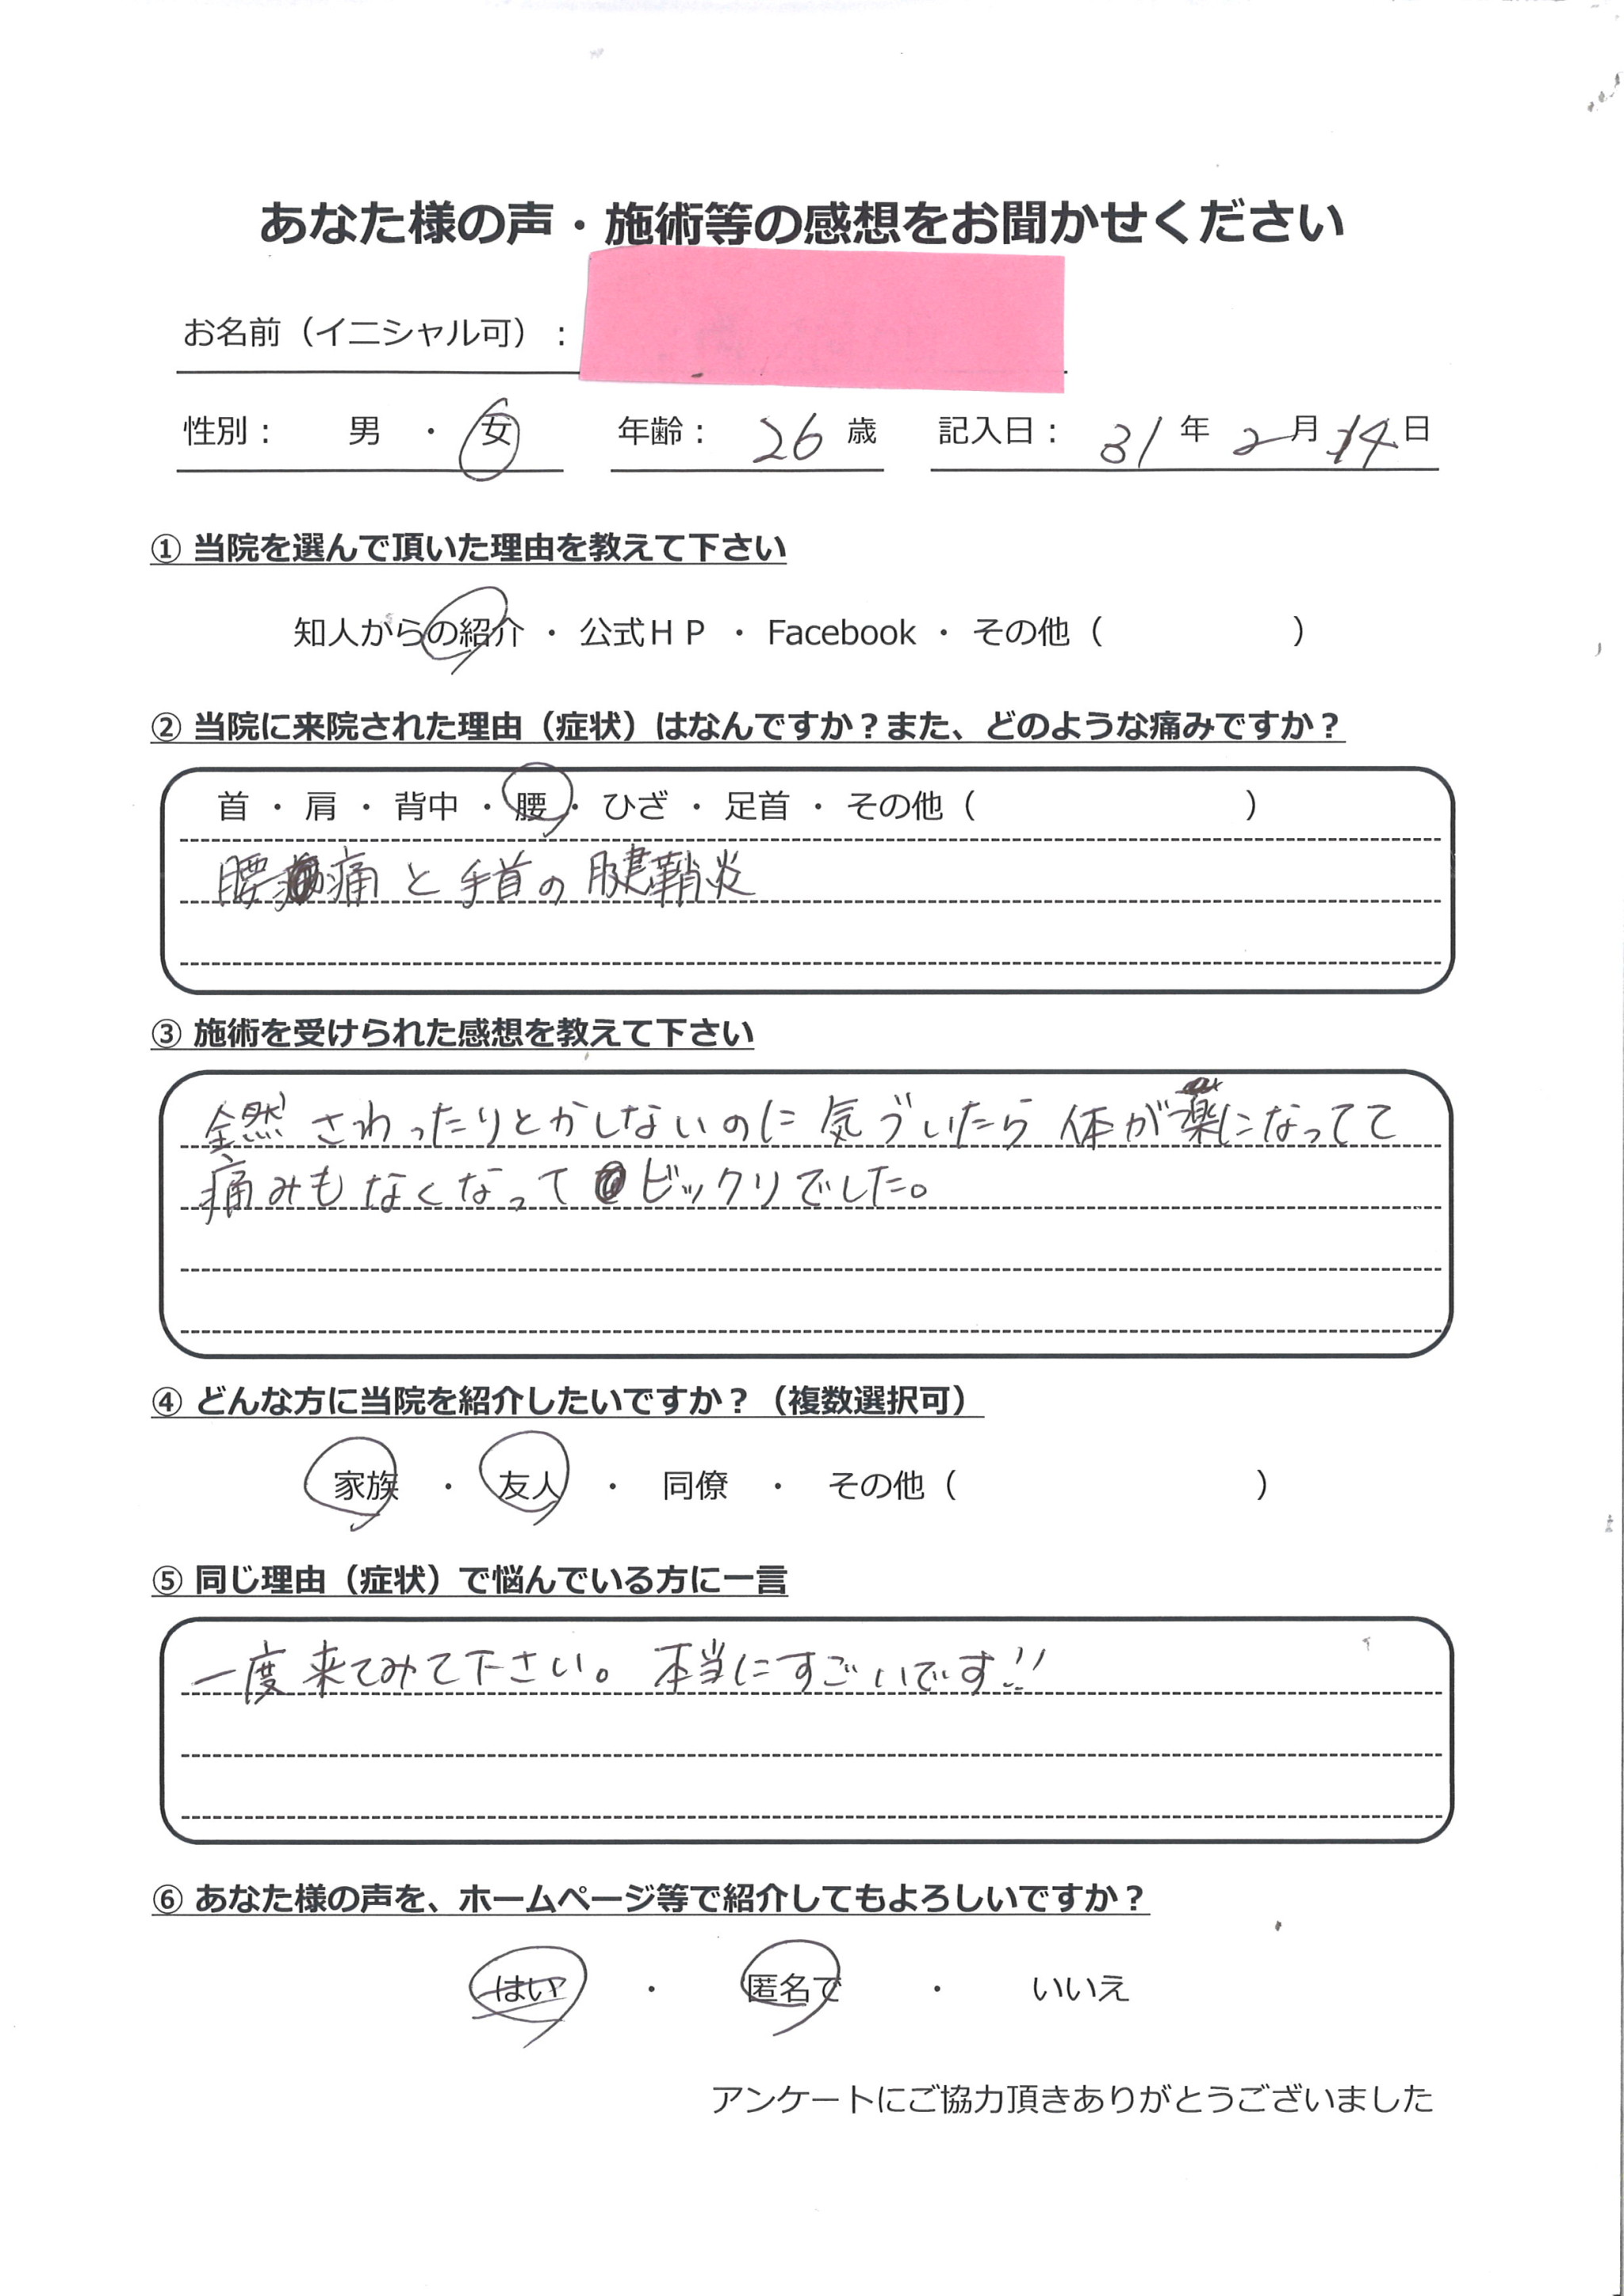 あなた様の声・施術等の感想をお聞かせください
お名前（イニシャル可）：
性別： 男 ・ 女 年齢： 26 歳 記入日： 31 年 2 月 14 日
① 当院を選んで頂いた理由を教えて下さい
知人からの紹介 ・ 公式ＨＰ ・ Facebook ・ その他（ ）
② 当院に来院された理由（症状）はなんですか？また、どのような痛みですか？
首 ・ 肩 ・ 背中 ・ 腰 ・ ひざ ・ 足首 ・ その他（ ）
腰痛と手首の腱鞘炎
③ 施術を受けられた感想を教えて下さい
全然さわったりとかしないのに気づいたら体が楽になってて
痛みもなくなってビックリでした。
④ どんな方に当院を紹介したいですか？（複数選択可）
家族 ・ 友人 ・ 同僚 ・ その他（ ）
⑤ 同じ理由（症状）で悩んでいる方に一言
一度来てみて下さい。本当にすごいです!!
⑥ あなた様の声を、ホームページ等で紹介してもよろしいですか？
はい ・ 匿名で ・ いいえ
アンケートにご協力頂きありがとうございました